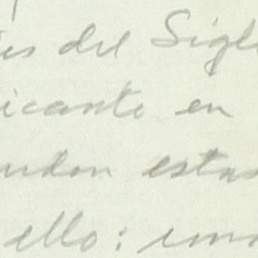 es del Sigl
icante en
udon estas
ello: una